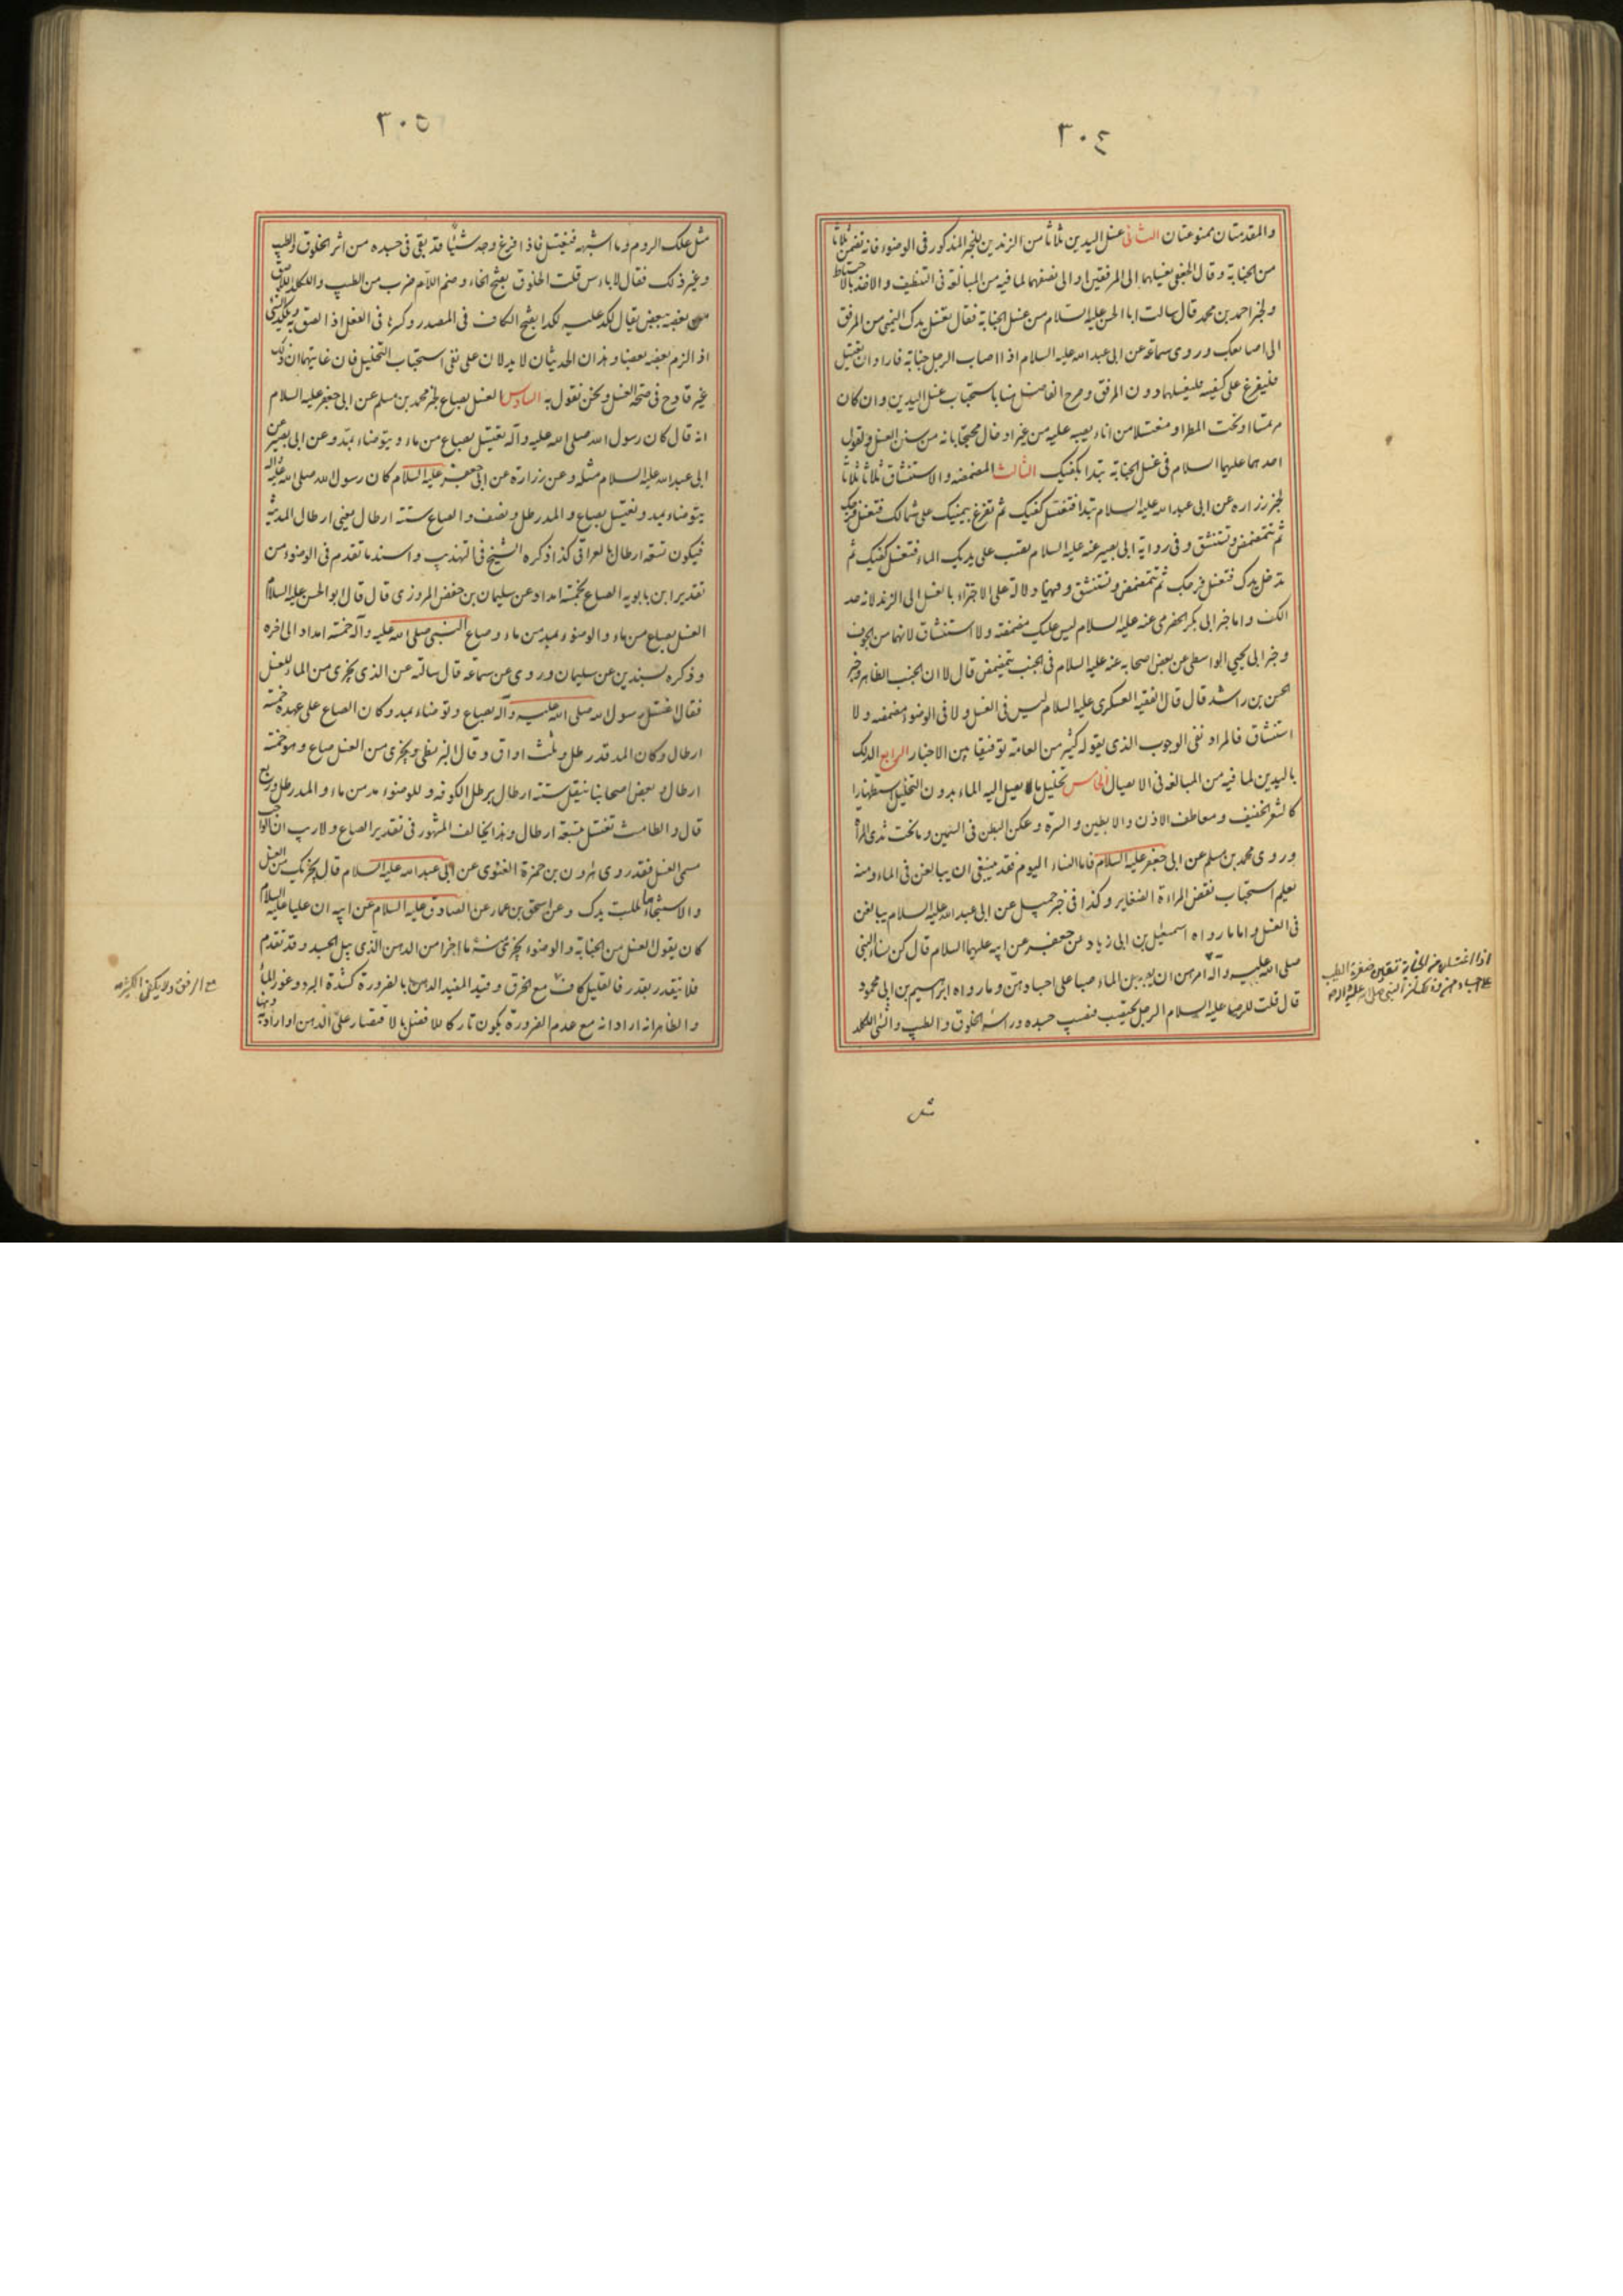 ٣٠٤
والمقدمتان ممنوعتان الثانى غسل اليدين ثلاثا من الزندين للخبر المذكور فى الوضوء فانه تضمن ثلاثا
من الجنابة وقال الجعفى يغسلهما الى المرفقين او الى نصفهما لما فيه من المبالغة فى التنظيف والاخذ بالاحتياط
ولخبر احمد بن محمد قال سالت ابا الحسن عليه السلام من غسل الجنابة فقال تغسل يدك اليمنى من المرفق
الى اصابعك وروى سماعة عن ابى عبد الله عليه السلام اذا اصاب الرجل جنابة فاراد ان يغتسل
فليفرغ على كفيه فليغسلهما دون المرفق وصرح الفاضل هنا باستحباب غسل اليدين وان كان
مرتمسا او تحت المطر او مغتسلا من اناء يصبه عليه من غير ادخال محتجا بانه من سنن الغسل ولقول
احدهما عليهما السلام فى غسل الجنابة تبدا بكفيك الثالث المضمضة والاستنشاق ثلاثا ثلاثا
لخبر زراره عن ابى عبد الله عليه السلام تبدا فتغسل كفيك ثم تفرغ بيمينك على شمالك فتغسل فرجك
ثم تتمضمض وتستنشق وفى رواية ابى بصير عنه عليه السلام تصب على يديك الماء فتغسل كفيك ثم
تدخل يدك فتغسل فرجك ثم تتمضمض وتستنشق وفيهما دلالة على الاجتزاء بالغسل الى الزند لانه حد
الكف واما خبر ابى بكر الحضرمى عنه عليه السلام ليس عليك مضمضة ولا استنشاق لانهما من الجوف
وخبر ابى يحيى الواسطى عن بعض اصحابه عنه عليه السلام فى الجنب يتمضمض قال لا ان الجنب الظاهر وخبر
الحسن بن راشد قال قال الفقيه العسكرى عليه السلام ليس فى الغسل ولا فى الوضوء مضمضه ولا
استنشاق فالمراد نفى الوجوب الذى يقوله كثير من العامة توفيقا بين الاخبار الرابع الدلك
باليدين لما فيه من المبالغة فى الايصال الخامس تخليل ما يصل اليه الماء بدون التخليل استظهارا
كالشعر الخفيف ومعاطف الاذن والابطين والسرة وعكن البطن فى السمين وما تحت ثدى المرأة
وروى محمد بن مسلم عن ابى جعفر عليه السلام فاما النساء اليوم فقد ينبغى ان يبالغن فى الماء ومنه
يعلم استحباب نقض المراءة الضفاير وكذا فى خبر جميل عن ابى عبد الله عليه السلام يبالغن
فى الغسل واما ما رواه اسمعيل بن ابى زياد عن جعفر عن ابيه عليهما السلام قال كن نساء النبى
صلى الله عليه وآله امرهن ان يصببن الماء صبا على اجسادهن وما رواه ابراهيم بن ابى محمود
قال قلت للرضا عليه السلام الرجل يجتنب فيصيب جسده وراسه الخلوق والطيب والشئ اللكد
اذا اغتسلن من الجنابة تبقين صفرة الطيب
على اجسادهن وذلك ان النبى صلى الله عليه وآله
مثل
٣٠٥
مثل علك الروم وما اشبهه فيغتسل فاذا فرغ وجد شيئا قد بقى فى جسده من اثر الخلوق والطيب
وغير ذلك فقال لا باءس قلت الخلوق بفتح الخاء وضم اللام ضرب من الطيب واللكد اللاصق
بعضه ببعض يقال لكد عليه لكدا بفتح الكاف فى المصدر وكسرها فى الفعل اذا لصق به وتلكد الشئ
اذا لزم بعضه بعضا وهذان الحديثان لا يدلان على نفى استحباب التخليل فان غايتهما ان ذلك
غير قادح فى صحة الغسل ونحن نقول به السادس الغسل بصاع لخبر محمد بن مسلم عن ابى جعفر عليه السلام
انه قال كان رسول الله صلى الله عليه وآله يغتسل بصاع من ماء ويتوضاء بمد وعن ابى بصير عن
ابى عبد الله عليه السلام مثله وعن زرارة عن ابى جعفر عليه السلام كان رسول الله صلى الله عليه وآله
يتوضاء بمد ويغتسل بصاع والمد رطل ونصف والصاع ستة ارطال يعنى ارطال المدينة
فيكون تسعة ارطال بالعراقى كذا ذكره الشيخ فى التهذيب واسند ما تقدم فى الوضوء من
تقدير ابن بابويه الصاع بخمسة امداد عن سليمان بن حفص المروزى قال قال ابو الحسن عليه السلام
الغسل بصاع من ماء والوضوء بمد من ماء وصاع النبى صلى الله عليه وآله خمسة امداد الى اخره
وذكره بسندين عن سليمان وروى عن سماعة قال سالته عن الذى يجزى من الماء للغسل
فقال اغتسل رسول الله صلى الله عليه وآله بصاع وتوضاء بمد وكان الصاع على عهده خمسة
ارطال وكان المد قدر رطل وثلث اواق وقال البزنطى ويجزى من الغسل صاع وهو خمسة
ارطال وبعض اصحابنا ينقل ستة ارطال برطل الكوفه وللوضوء مد من ماء والمد رطل وربع
قال والطامث تغتسل بتسعة ارطال وهذا يخالف المشهور فى تقدير الصاع ولا ريب ان الواجب
مسمى الغسل فقد روى هرون بن حمزة الغنوى عن ابى عبد الله عليه السلام قال يجزيك من الغسل
والاستنجاء ما بللت يدك وعن اسحق بن عمار عن الصادق عليه السلام عن ابيه ان عليا عليه السلام
كان يقول الغسل من الجنابة والوضوء يجزى منه ما اجزا من الدهن الذى يبل الجسد وقد تقدم
فلا يتقدر بقدر فالقليل كاف مع الخرق وقيد المفيد الدهن بالضرورة كشدة البرد وعوز الماء
والظاهر انه اراد انه مع عدم الضرورة يكون تاركا للافضل بالاقتصار على الدهن او اراد به